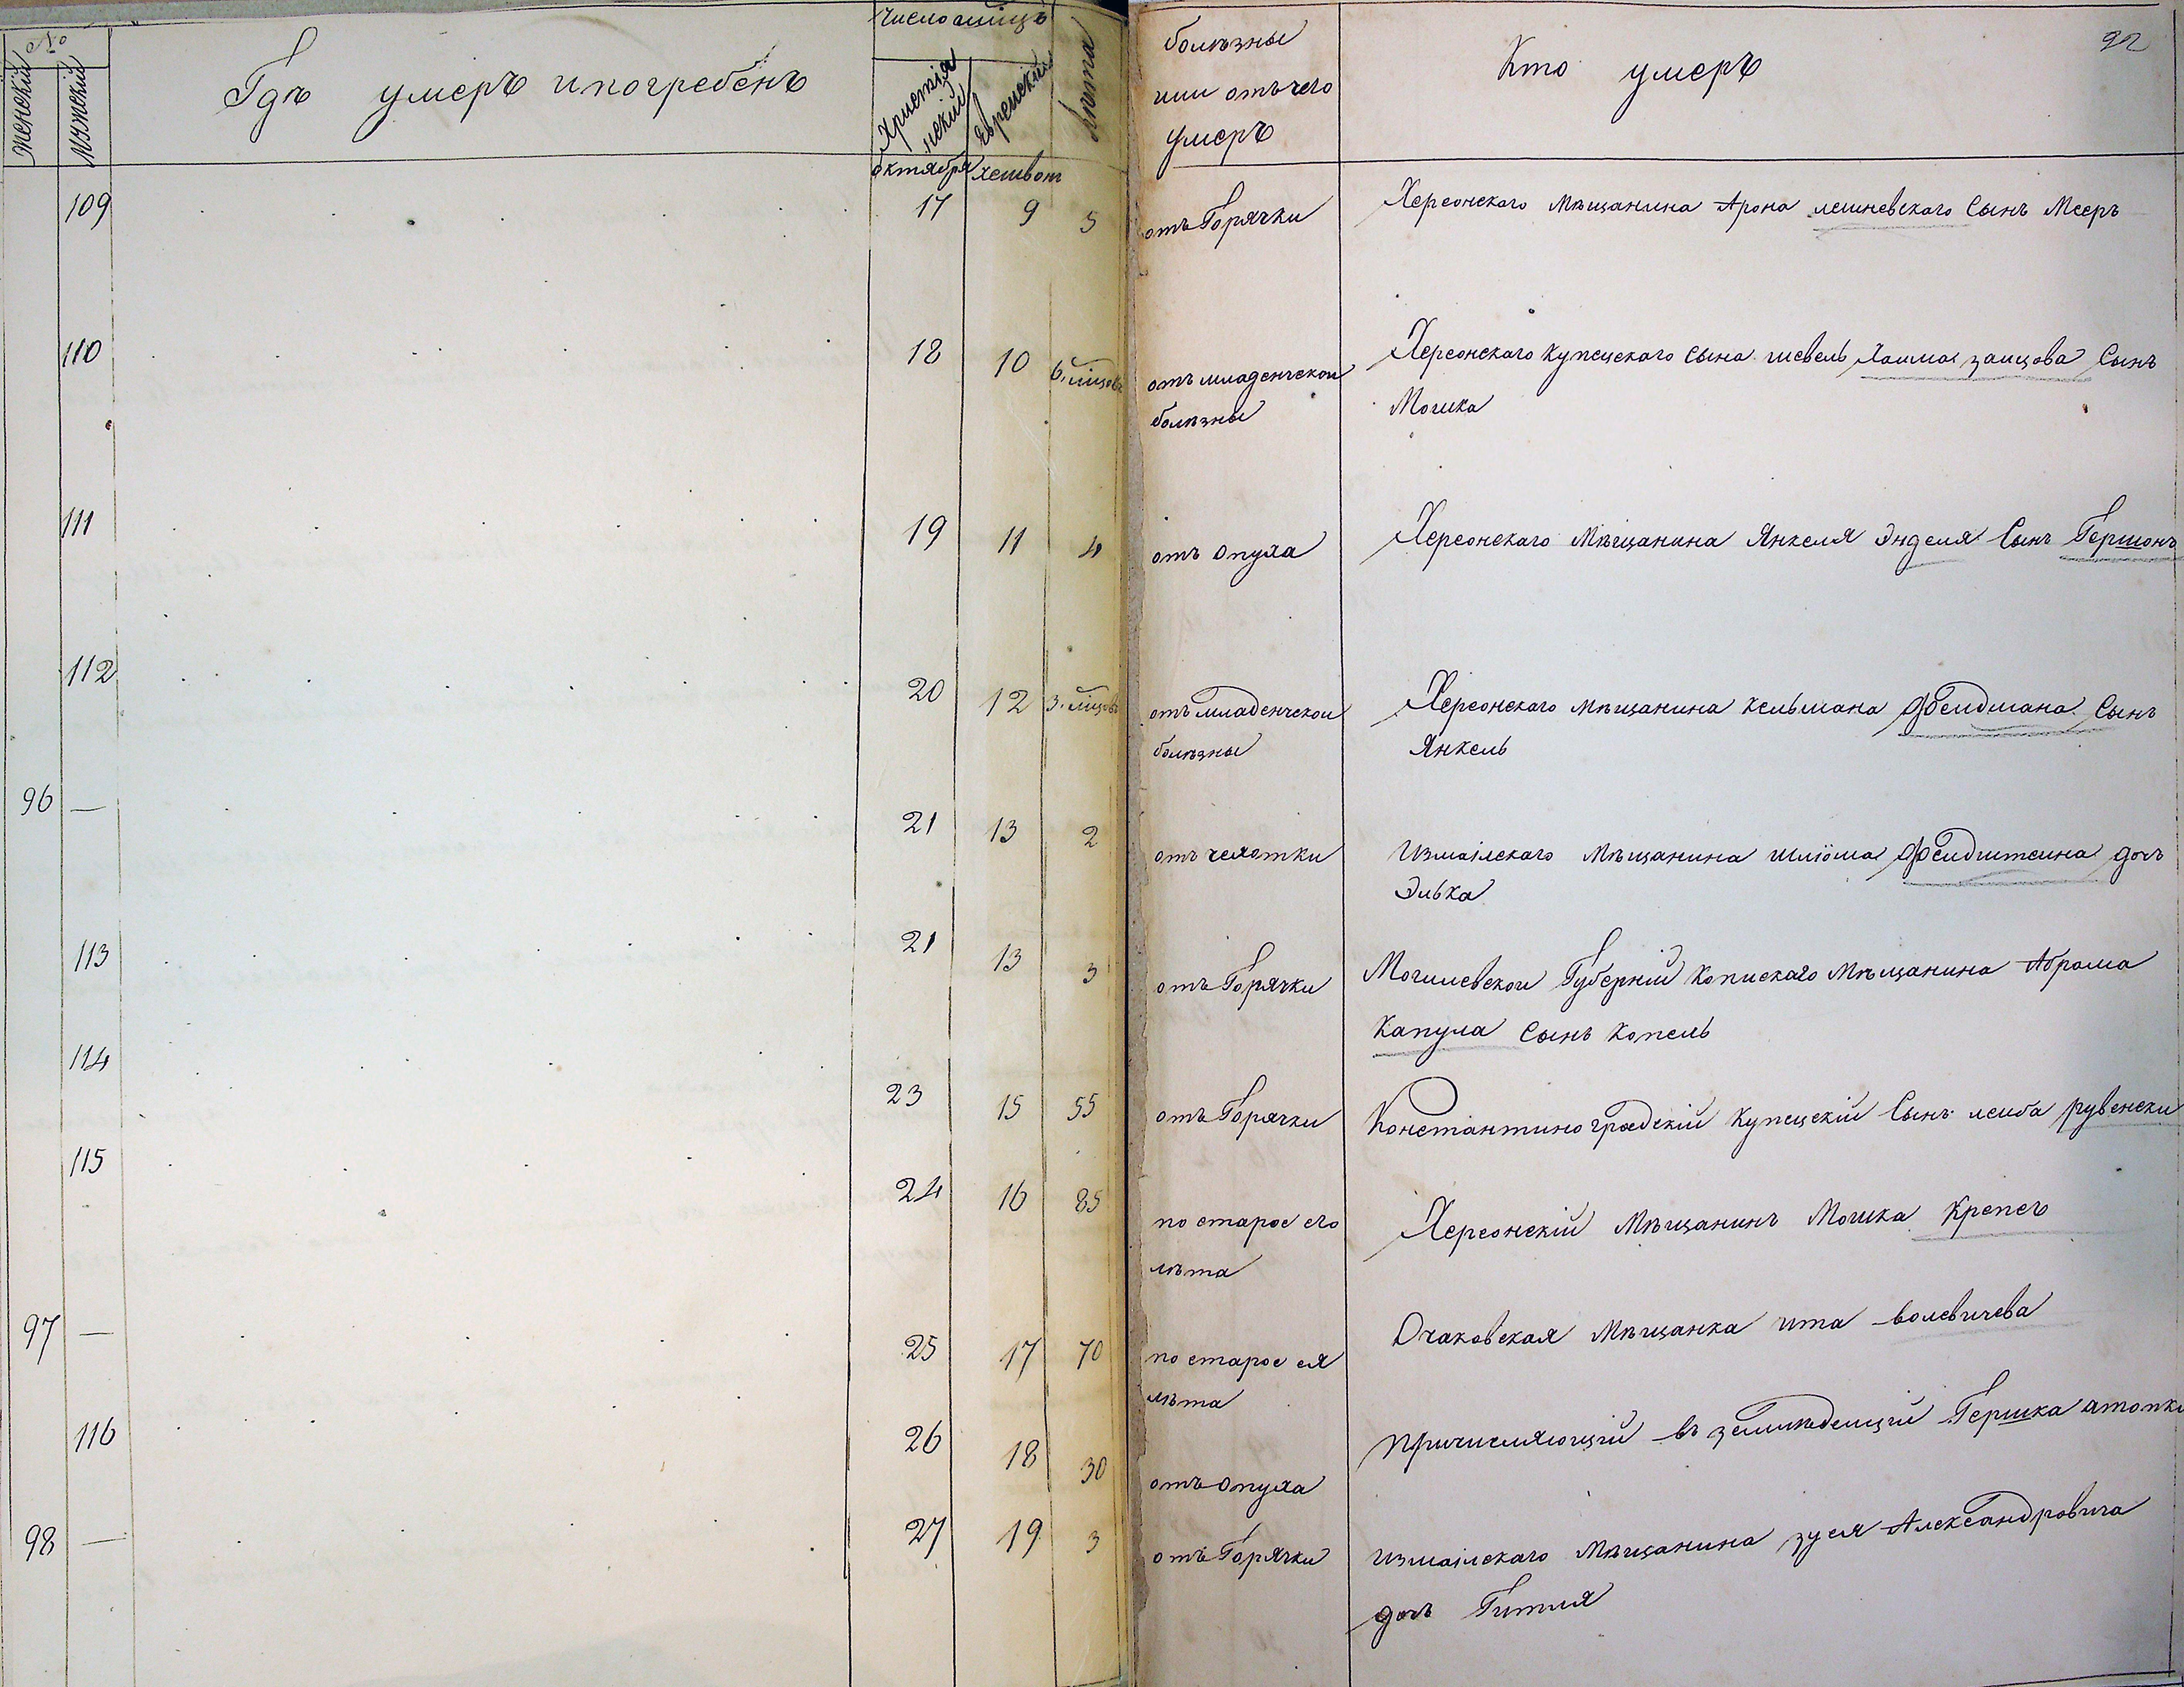 №
Женскій
Мужескій
Гдѣ умеръ и погребенъ
Число мѣцъ
Христіянскій
Еврейскій
Лѣта
болѣзны
или отъ чего
умеръ
Кто умеръ
92
Октября хешвот
109 17 9 5 отъ Горячки Херсонскаго Мѣщанина Арона лешневскаго Сынъ Мееръ
110 18 10 6. мѣцовъ отъ младенческои Херсонскаго Купецскаго Сына шевель Хаима заицова Сынъ
болѣзны Мошка
111 19 11 4 отъ Опуха Херсонскаго Мѣщанина Янкеля Энделя Сынъ Гершонъ
112 20 12 3. мѣцовъ отъ младенческои Херсонскаго Мѣщанина Кельмана Фелдмана Сынъ
болѣзны Янкель
96 — 21 13 2 отъ чехотки Измаілскаго Мѣщанина шліома Фелдштеина дочь
Элька
113 21 13 3 отъ Горячки Могилевскои Губерніи Копискаго Мѣщанина Абрама
Капула Сынъ Копель
114 23 15 55 отъ Горячки Константиноградскій Купецскій Сынъ леиба рувенски
115 24 16 85 по старое его Херсонскій Мѣщанинъ Мошка Крепсъ
лѣта
97 — 25 17 70 по старое ея Очаковская Мѣщанка ита волевичева
лѣта
116 26 18 30 отъ Опуха причисляющій въ Гершка
98 — 27 19 3 отъ Горячки измаілскаго Мѣщанина зуся Александровича
дочь Гитля